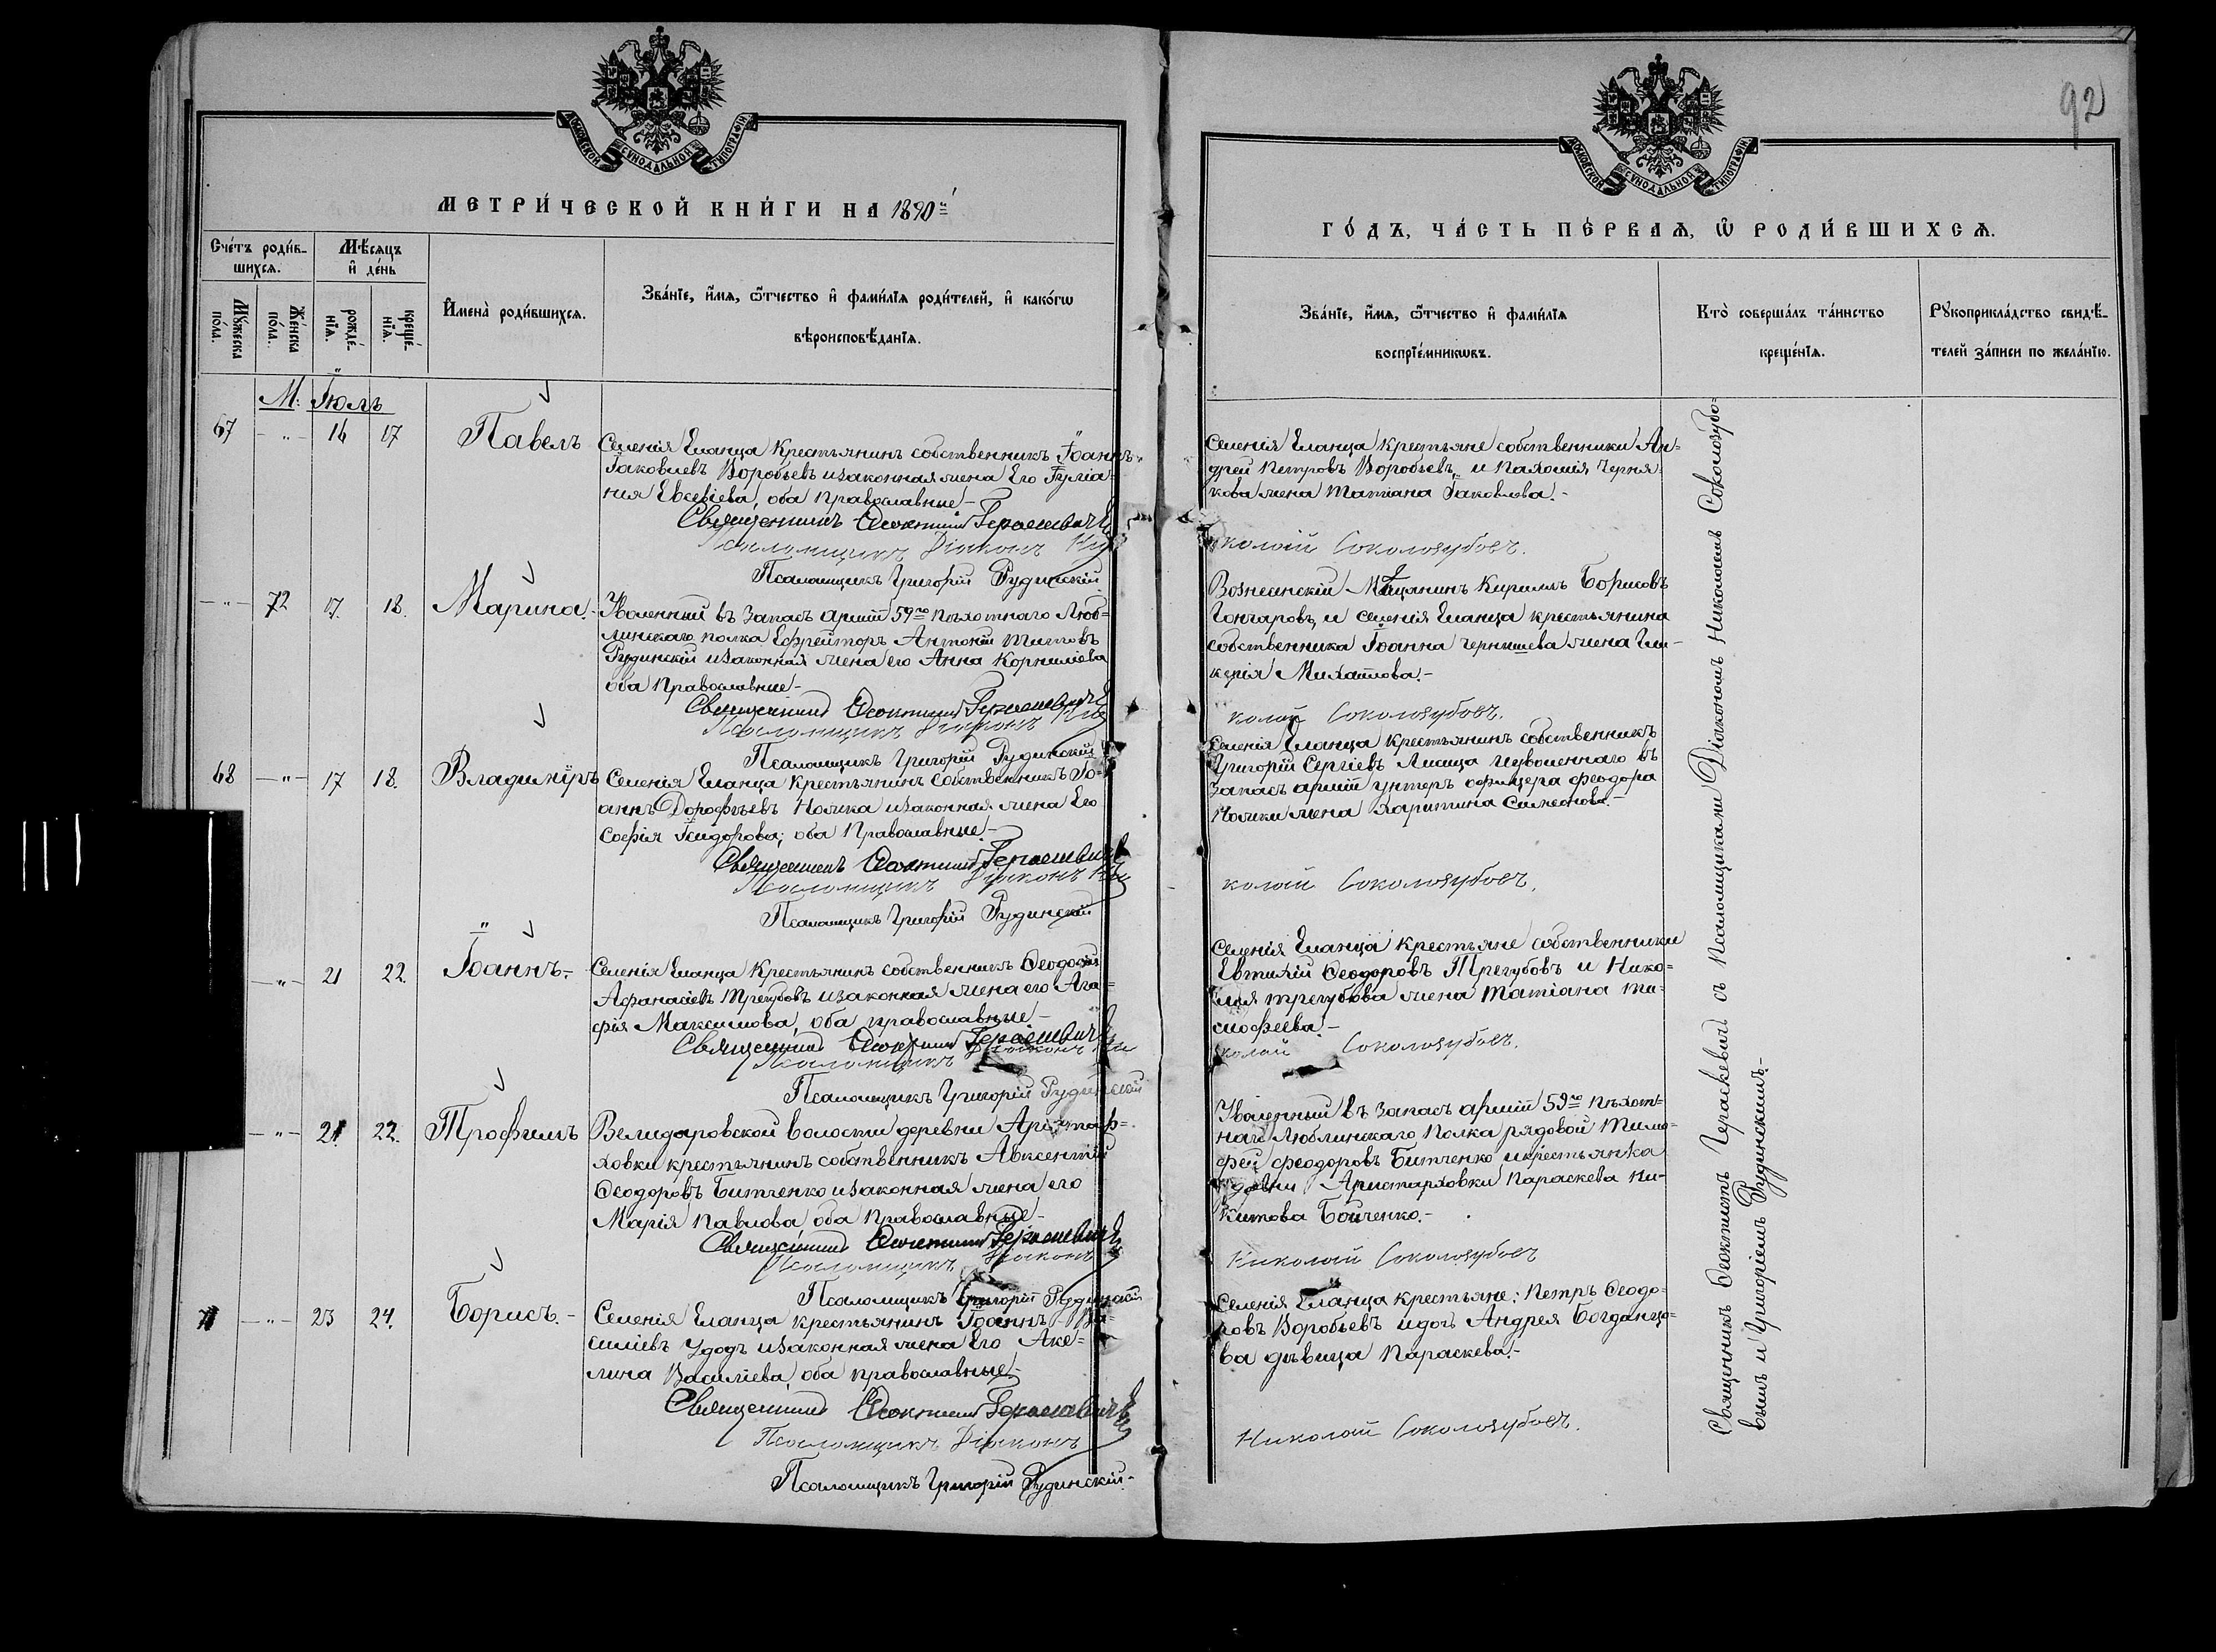 92
МОСКОВСКОЙ СУНОДАЛЬНОЙ ТИПОГРАФІИ
МЕТРИ́ЧЕСКОЙ КНИ́ГИ НА 1890й
Сче́тъ роди́в-
шихся.
Мѣ́сяцъ
и҆ де́нь
Мꙋ́жеска
по́ла.
Же́нска
по́ла.
рожде́-
нїя.
креще́-
нїя.
И҆мена̀ роди́вшихся.
Зва́нїе, и҆́мя, ѻ҆́тчество и҆ фами́лїя роди́телей, и҆ како́гѡ
вѣроисповѣ́данїя.
М: Іюль
67 -"- 16 17 Павелъ
Селенія Еланца Крестьянинъ собственникъ Іоаннъ
Іаковлевъ Воробьевъ изаконная жена Его Іуліа-
нія Евсевіева, оба Православные-
Священникъ Ѳеоктистъ Гераскевичъ
Псаломщикъ Діаконъ Ни
Псаломщикъ Григорій Рудинскій
-"- 72 17. 18. Марина.-
Уволенный въ Запасъ арміи 59го Пѣхотнаго Люб=
линскаго полка Ефрейторъ Антоній Титовъ
Рудинскій изаконная жена его Анна Корниліева
оба Православные-
Священникъ Ѳеоктистъ Гераскевичъ
Псаломщикъ Діаконъ Ни
Псаломщикъ Григорій Рудинскій
68 -"- 17 18. Владиміръ
Селенія Еланца Крестьянинъ Собственникъ Іо-
аннъ Дорофѣевъ Нолика изаконная жена Его
Софія Исидорова; оба Православные-
Священникъ Ѳеоктистъ Гераскевичъ
Псаломщикъ Діаконъ Ни
Псаломщикъ Григорій Рудинскій
-"- 21 22. Іоаннъ.-
Селенія Еланца Крестьянинъ собственникъ Ѳеодосій
Афанасіевъ Трегубовъ изаконная жена его Ага=
фія Максимова, оба православные-
Священникъ Ѳеоктистъ Гераскевичъ
Псаломщикъ Діаконъ Ни
Псаломщикъ Григорій Рудинскій
-"- 21 22. Трофимъ
Велидаровской волости деревни Аристар=
ховки крестьянинъ собственникъ Авксентій
Ѳеодоровъ Битченко изаконная жена его
Марія Павлова, оба Православные-
Священникъ Ѳеоктистъ Гераскевичъ
Псаломщикъ Діаконъ
Псаломщикъ Григорій Рудинскій
-"- 23 24. Борисъ.-
Селенія Еланца крестьянинъ Іоаннъ Ва=
силіевъ Удодъ изаконная жена Его Аке=
лина Василіева, оба православные-
Священникъ Ѳеоктистъ Гераскевичъ
Псаломщикъ Діаконъ
Псаломщикъ Григорій Рудинскій-
МОСКОВСКОЙ СУНОДАЛЬНОЙ ТИПОГРАФІИ
ГО́ДЪ, ЧА́СТЬ ПЕ́РВАЯ, Ѡ҆ РОДИ́ВШИХСЯ.
Зва́нїе, и҆́мя, ѻ҆́тчество и҆ фами́лїя
воспрїе́мникѡвъ.
Кто̀ соверша́лъ та́инство
креще́нїя.
Рꙋкоприкла́дство свидѣ́-
телей за́писи по жела́нїю.
Селенія Еланца Крестьяне собственники Ан=
дрей Петровъ Воробьевъ, и Пахомія Черня-
кова жена Татіана Іаковлева.-
колай Соколозубовъ.
Вознесенскій Мѣщанинъ Кириллъ Борисовъ
Гончаровъ, и селенія Еланца крестьянина
собственника Іоанна Чернышева жена Гли-
керія Михайлова.-
колай Соколозубовъ.
Селенія Еланца Крестьянинъ собственникъ
Григорій Сергіевъ Лисица иуволеннаго въ
Запасъ арміи унтеръ офицера Феодора
Нолики жена Харитина Симеонова.-
колай Соколозубовъ.
Селенія Еланца Крестьяне собственники
Евтихій Ѳеодоровъ Трегубовъ и Нико=
лая трегубова жена Татіана Ти-
мофеева.-
колай Соколозубовъ.
Уволенный въ Запасъ арміи 59го Пѣхот=
наго Люблинскаго Полка рядовой Тимо=
фей Феодоровъ Битченко икрестьянка
деревни Аристарховки Параскева Ни-
китова Бойченко.-
Николай Соколозубовъ
Селенія Еланца крестьяне: Петръ Ѳеодо=
ровъ Воробьевъ идочь Андрея Богданцо=
ва дѣвица Параскева.-
Николай Соколозубовъ.
Священникъ Ѳеоктистъ Гераскевичъ съ Псаломщиками Діакономъ Николаемъ Соколозубо=
вымъ и Григоріемъ Рудинскимъ.-